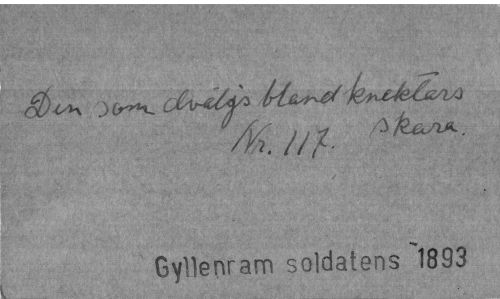 Den som dväljs bland knektars
skara.
Nr. 117.
Gyllenram soldatens 1893